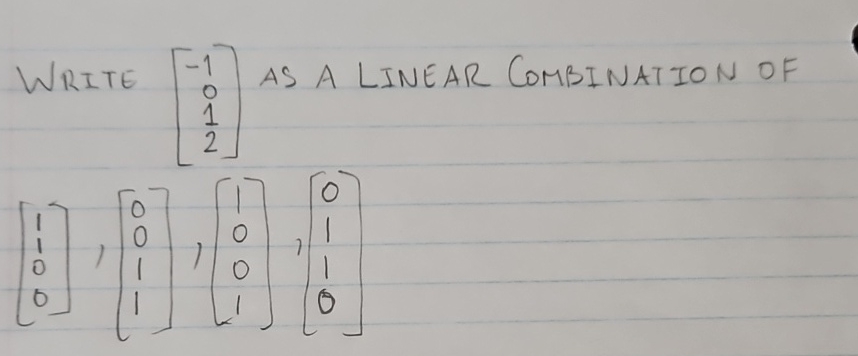 WRITE [-1 0 1 2] AS A LINEAR COMBINATION OF
[1 1 0 0] , [0 0 1 1] , [1 0 0 1] , [0 1 1 0]